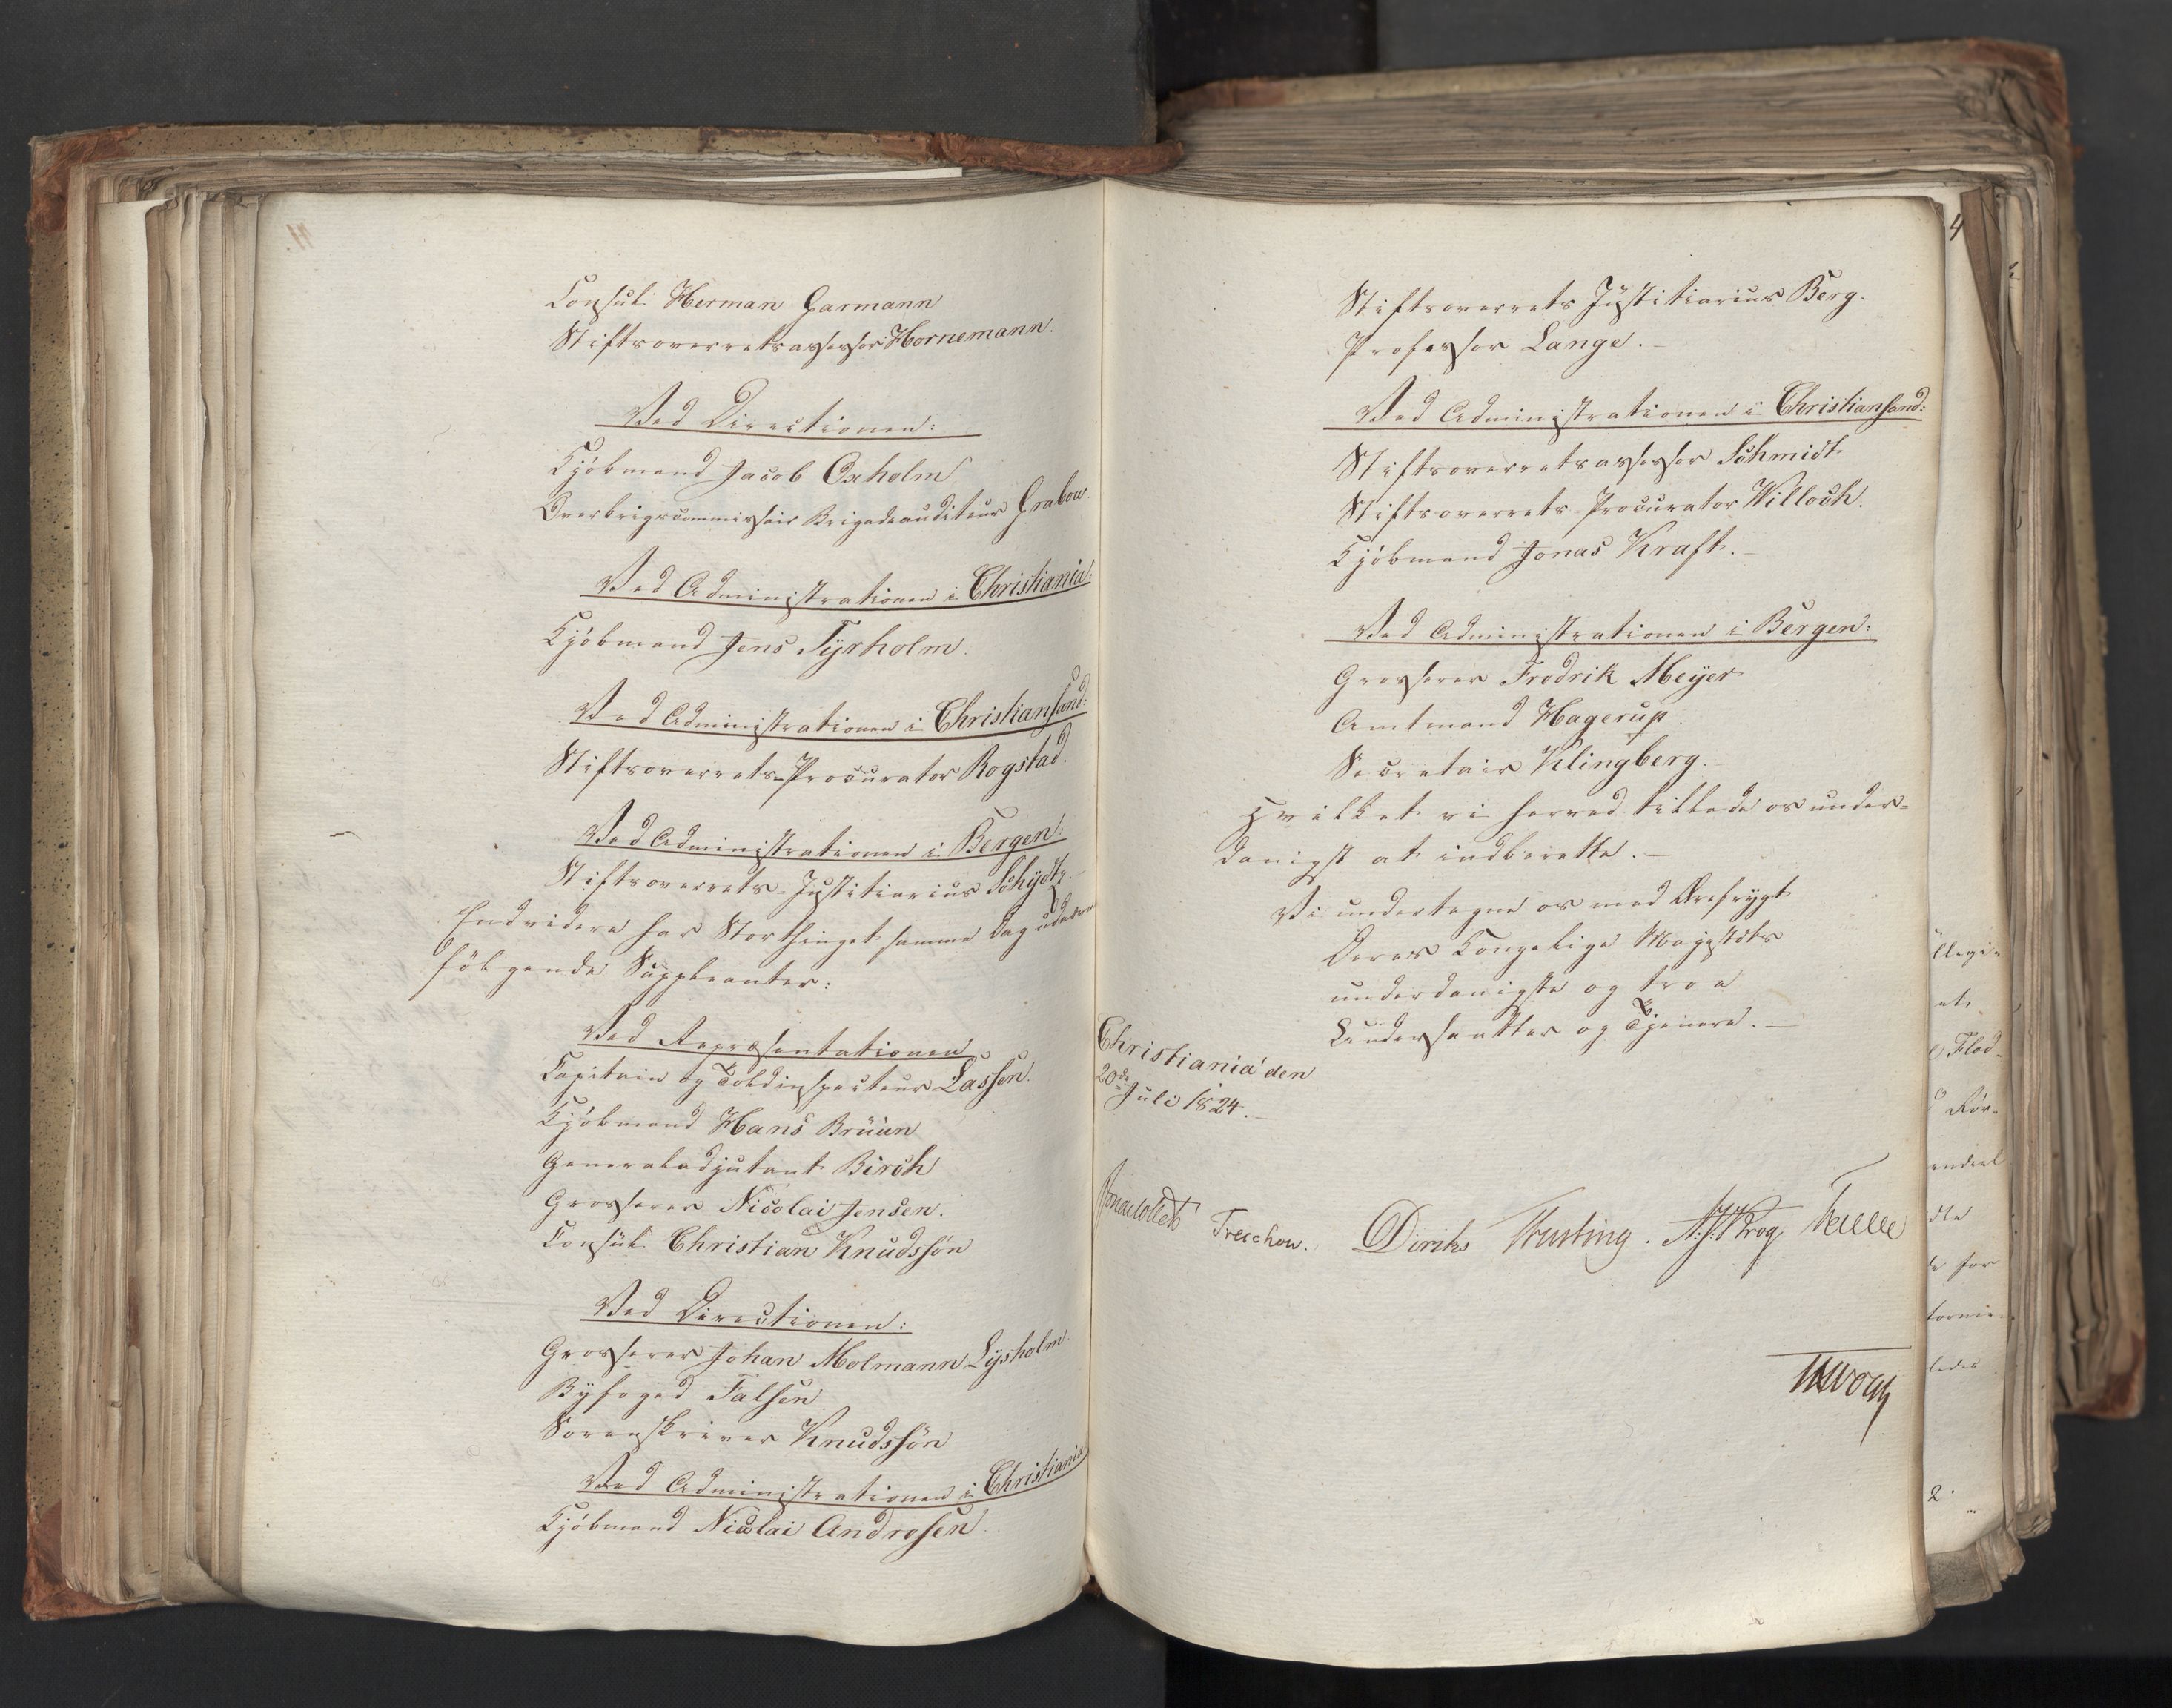 Consul Herman Garmann
Stiftsoverretsassessor Hornemann.
Ved Directionen:
Kjöbmand Jacob Oxholm
Overkrigscommissair Brigadeauditeur Grabow
Ved Administrationen i Christiania:
Kjöbmand Jens Tyrholm.
Ved Administrationen i Christiansand:
Stiftsoverrets-Procurator Rogstad.
Ved Administrationen i Bergen:
Stiftsoverrets-Justitiarius Schydtz.
Endvidere har Storthinget samme Dag udvalgt
fölgende Suppleanter:
Ved Repræsentationen
Capitain og Toldinspecteur Lassen.
Kjöbmand Hans Bruun
Generaladjutant Birch
Grosserer Nicolai Jensen.
Consul Christian Knudssön
Ved Directionen:
Grosserer Johan Molmann Lysholm
Byfoged Falsen
Sorenskriver Knudssön
Ved Administrationen i Christiania
Kjöbmand Nicolai Andresen.
Stiftsoverrets Justitiarius Berg.
Professor Lange.
Ved Administrationen i Christiansand:
Stiftsoverretsassessor Schmidt
Stiftsoverrets-Procurator Willoch.
Kjöbmand Jonas Kraft.
Ved Administrationen i Bergen:
Grosserer Fredrik Meyer
Amtmand Hagerup.
Secretair Klingberg.
Hvilket vi herved tillade os under-
danigst at indberette.
Vi undertegne os med Ærefrygt
Deres Kongelige Majestæts
underdanigste og troe
Undersaatter og Tjenere.
Christiania den
20de Juli 1824.
Jonas Collett Treschow. Diriks Krog